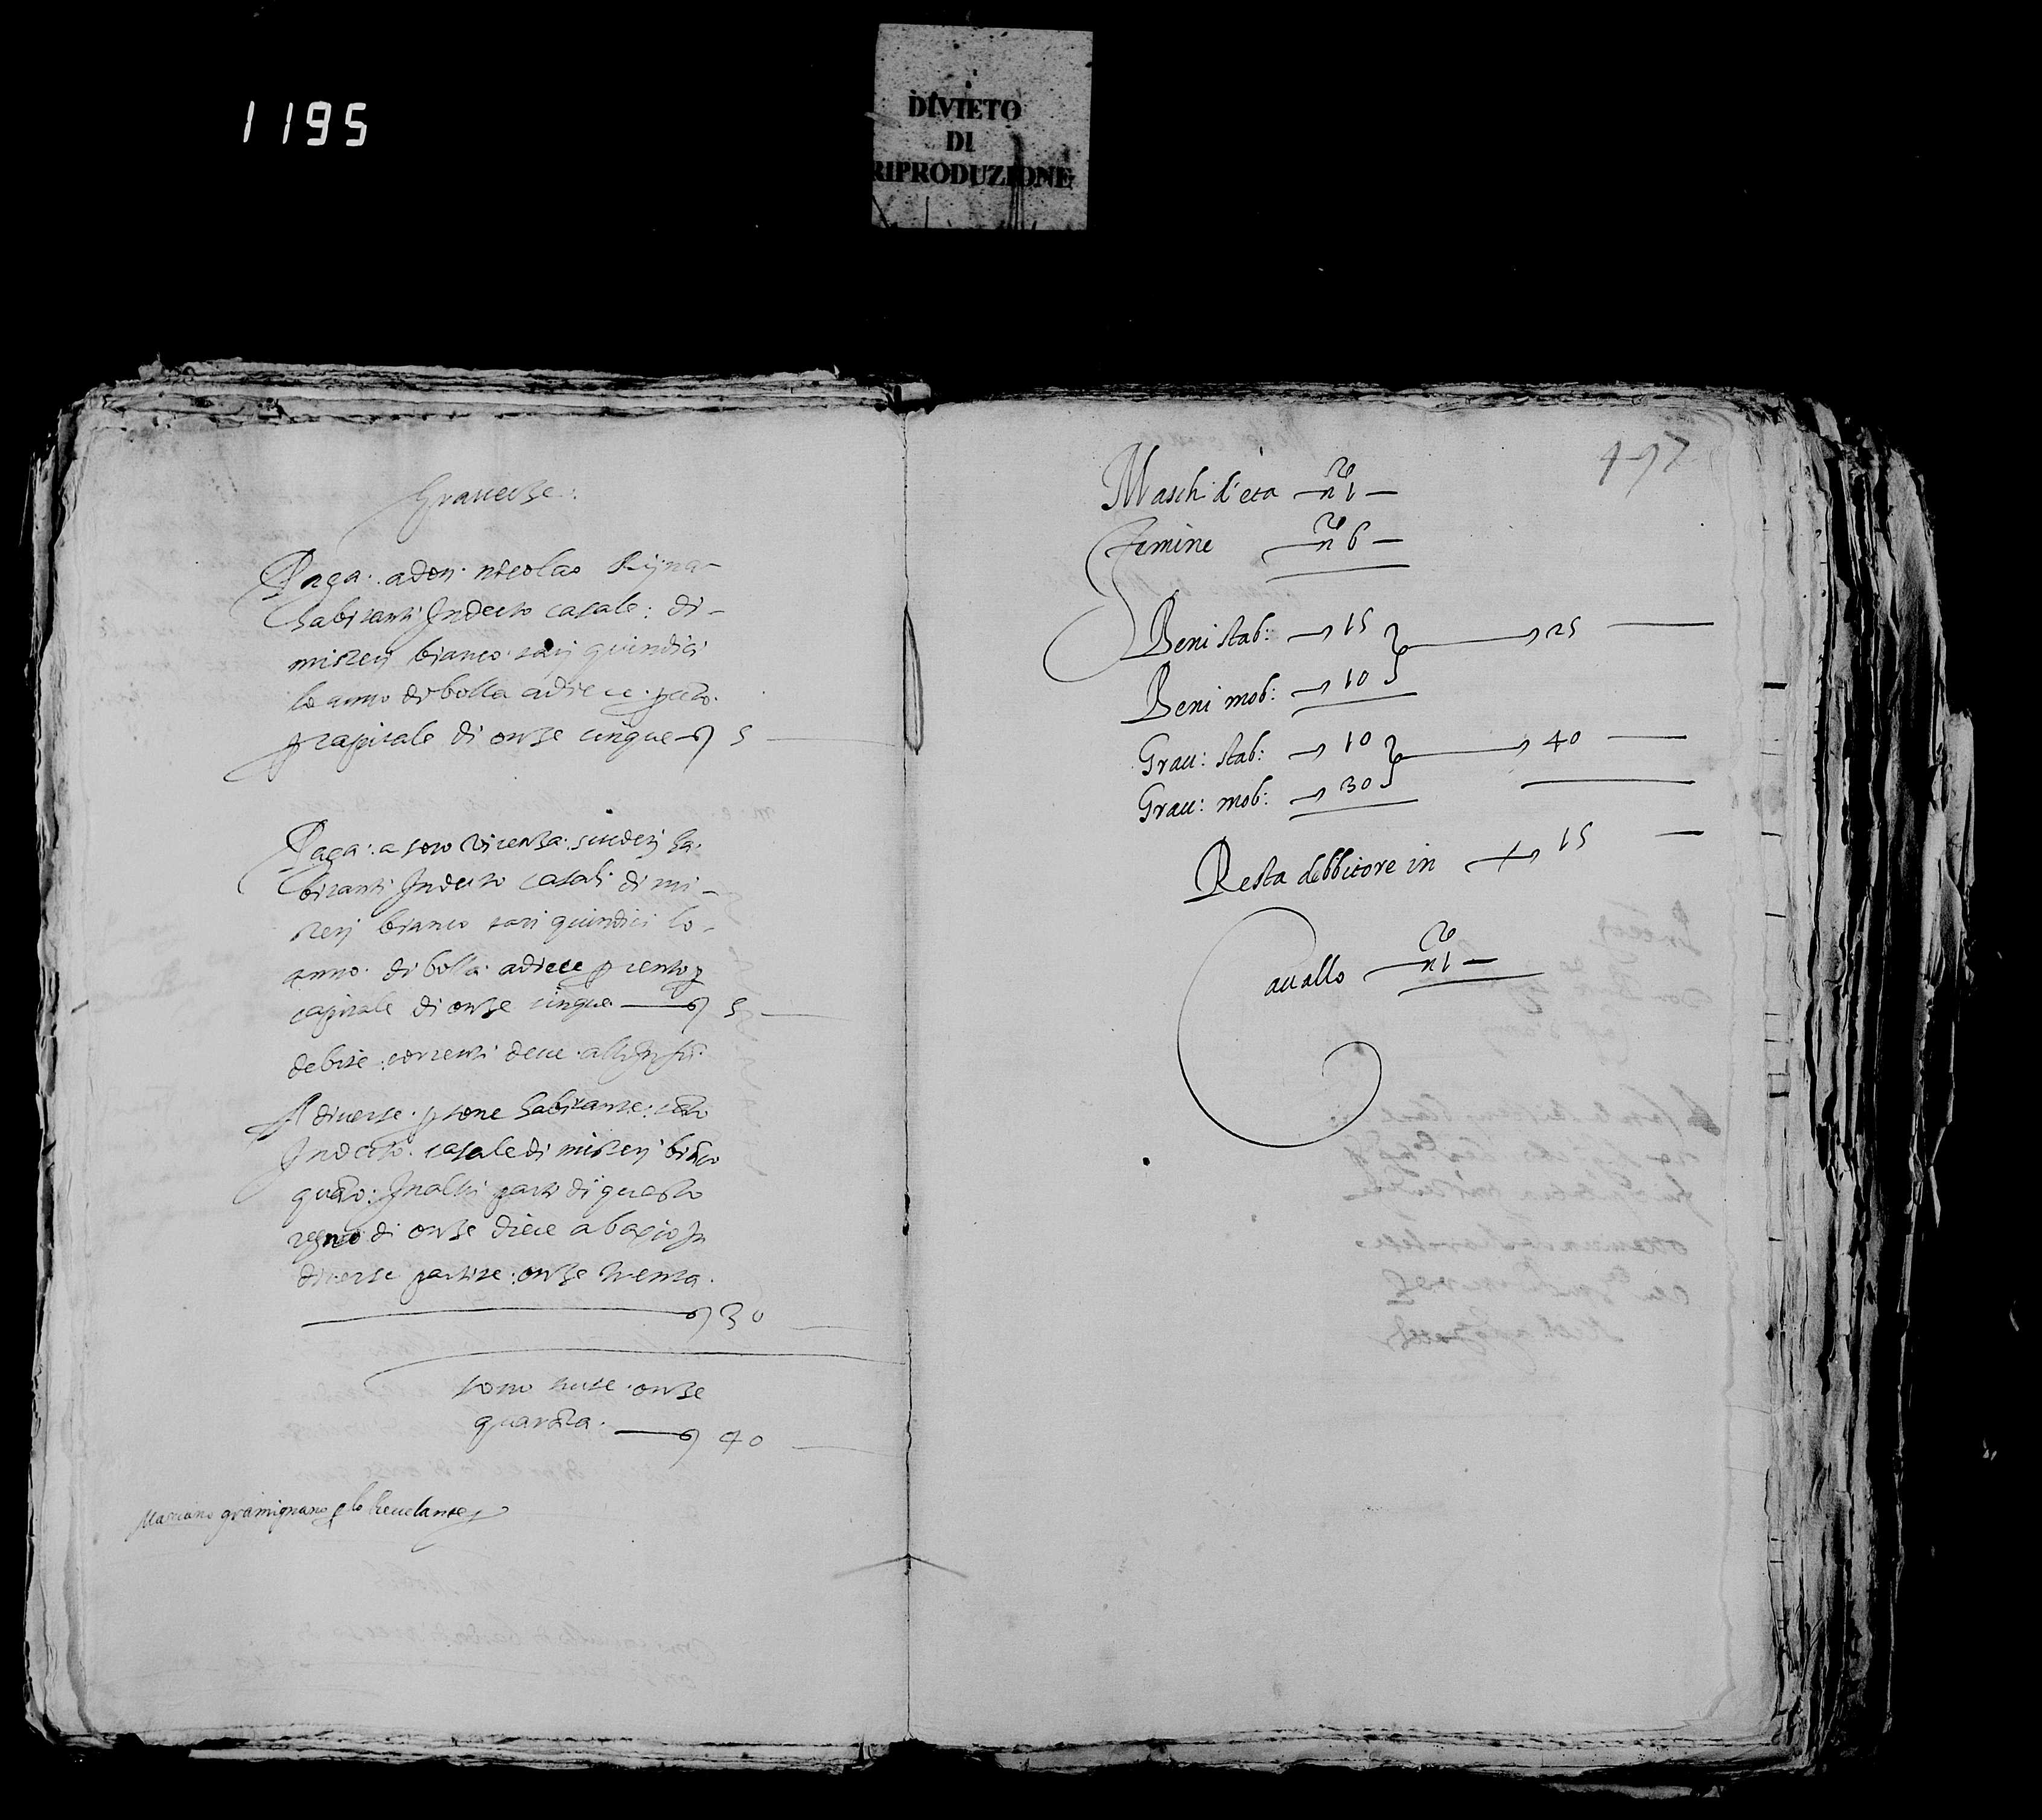 1195
DIVIETO
DI
RIPRODUZIONE
Gravezze:
Paga: a don: nicolao Rijna-
habitanti Indecto casale: di-
misterj bianco: tarj quindici
lo anno di bolla a diece p cēto.
p capitale di onze cinque 5
Paga: a soro vicenza: habi-
bitanti Indecto casali di mi-
sterj bianco tarj quindici lo-
anno: di bolla: adiece p cento p
capitale di onze cinque 5
debite: correnti deve
A diverse: psone habitante: tāto
Indecto: casale di misterj biāco
quāto: In altri parti di questo
regno di onze diece a bascio In
diverse partite: onze trenta.
30
sono tutte onze
quarāta. 40
Mariano gramignano p lo Revelante
497
Maschi d'età n° 1
Femine n° 6
Beni stab: 15 25
Beni mob: 10
Grau: stab: 10 40
Grau: mob: 30
Resta debbitore in 15
Cauallo n° 1